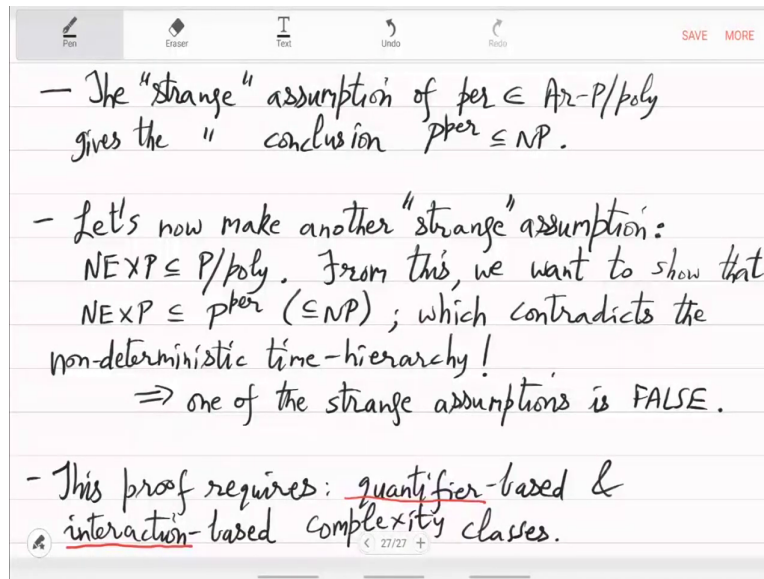 Pen Eraser Text Undo Redo SAVE MORE
- The "strange" assumption of per ∈ Ar-P/poly
gives the " conclusion P^per ⊆ NP.
- Let's now make another "strange" assumption:
NEXP ⊆ P/poly. From this, we want to show that
NEXP ⊆ P^per (⊆NP) ; which contradicts the
non-deterministic time-hierarchy!
⇒ one of the strange assumptions is FALSE.
- This proof requires: quantifier-based &
interaction-based complexity classes.
< 27/27 +